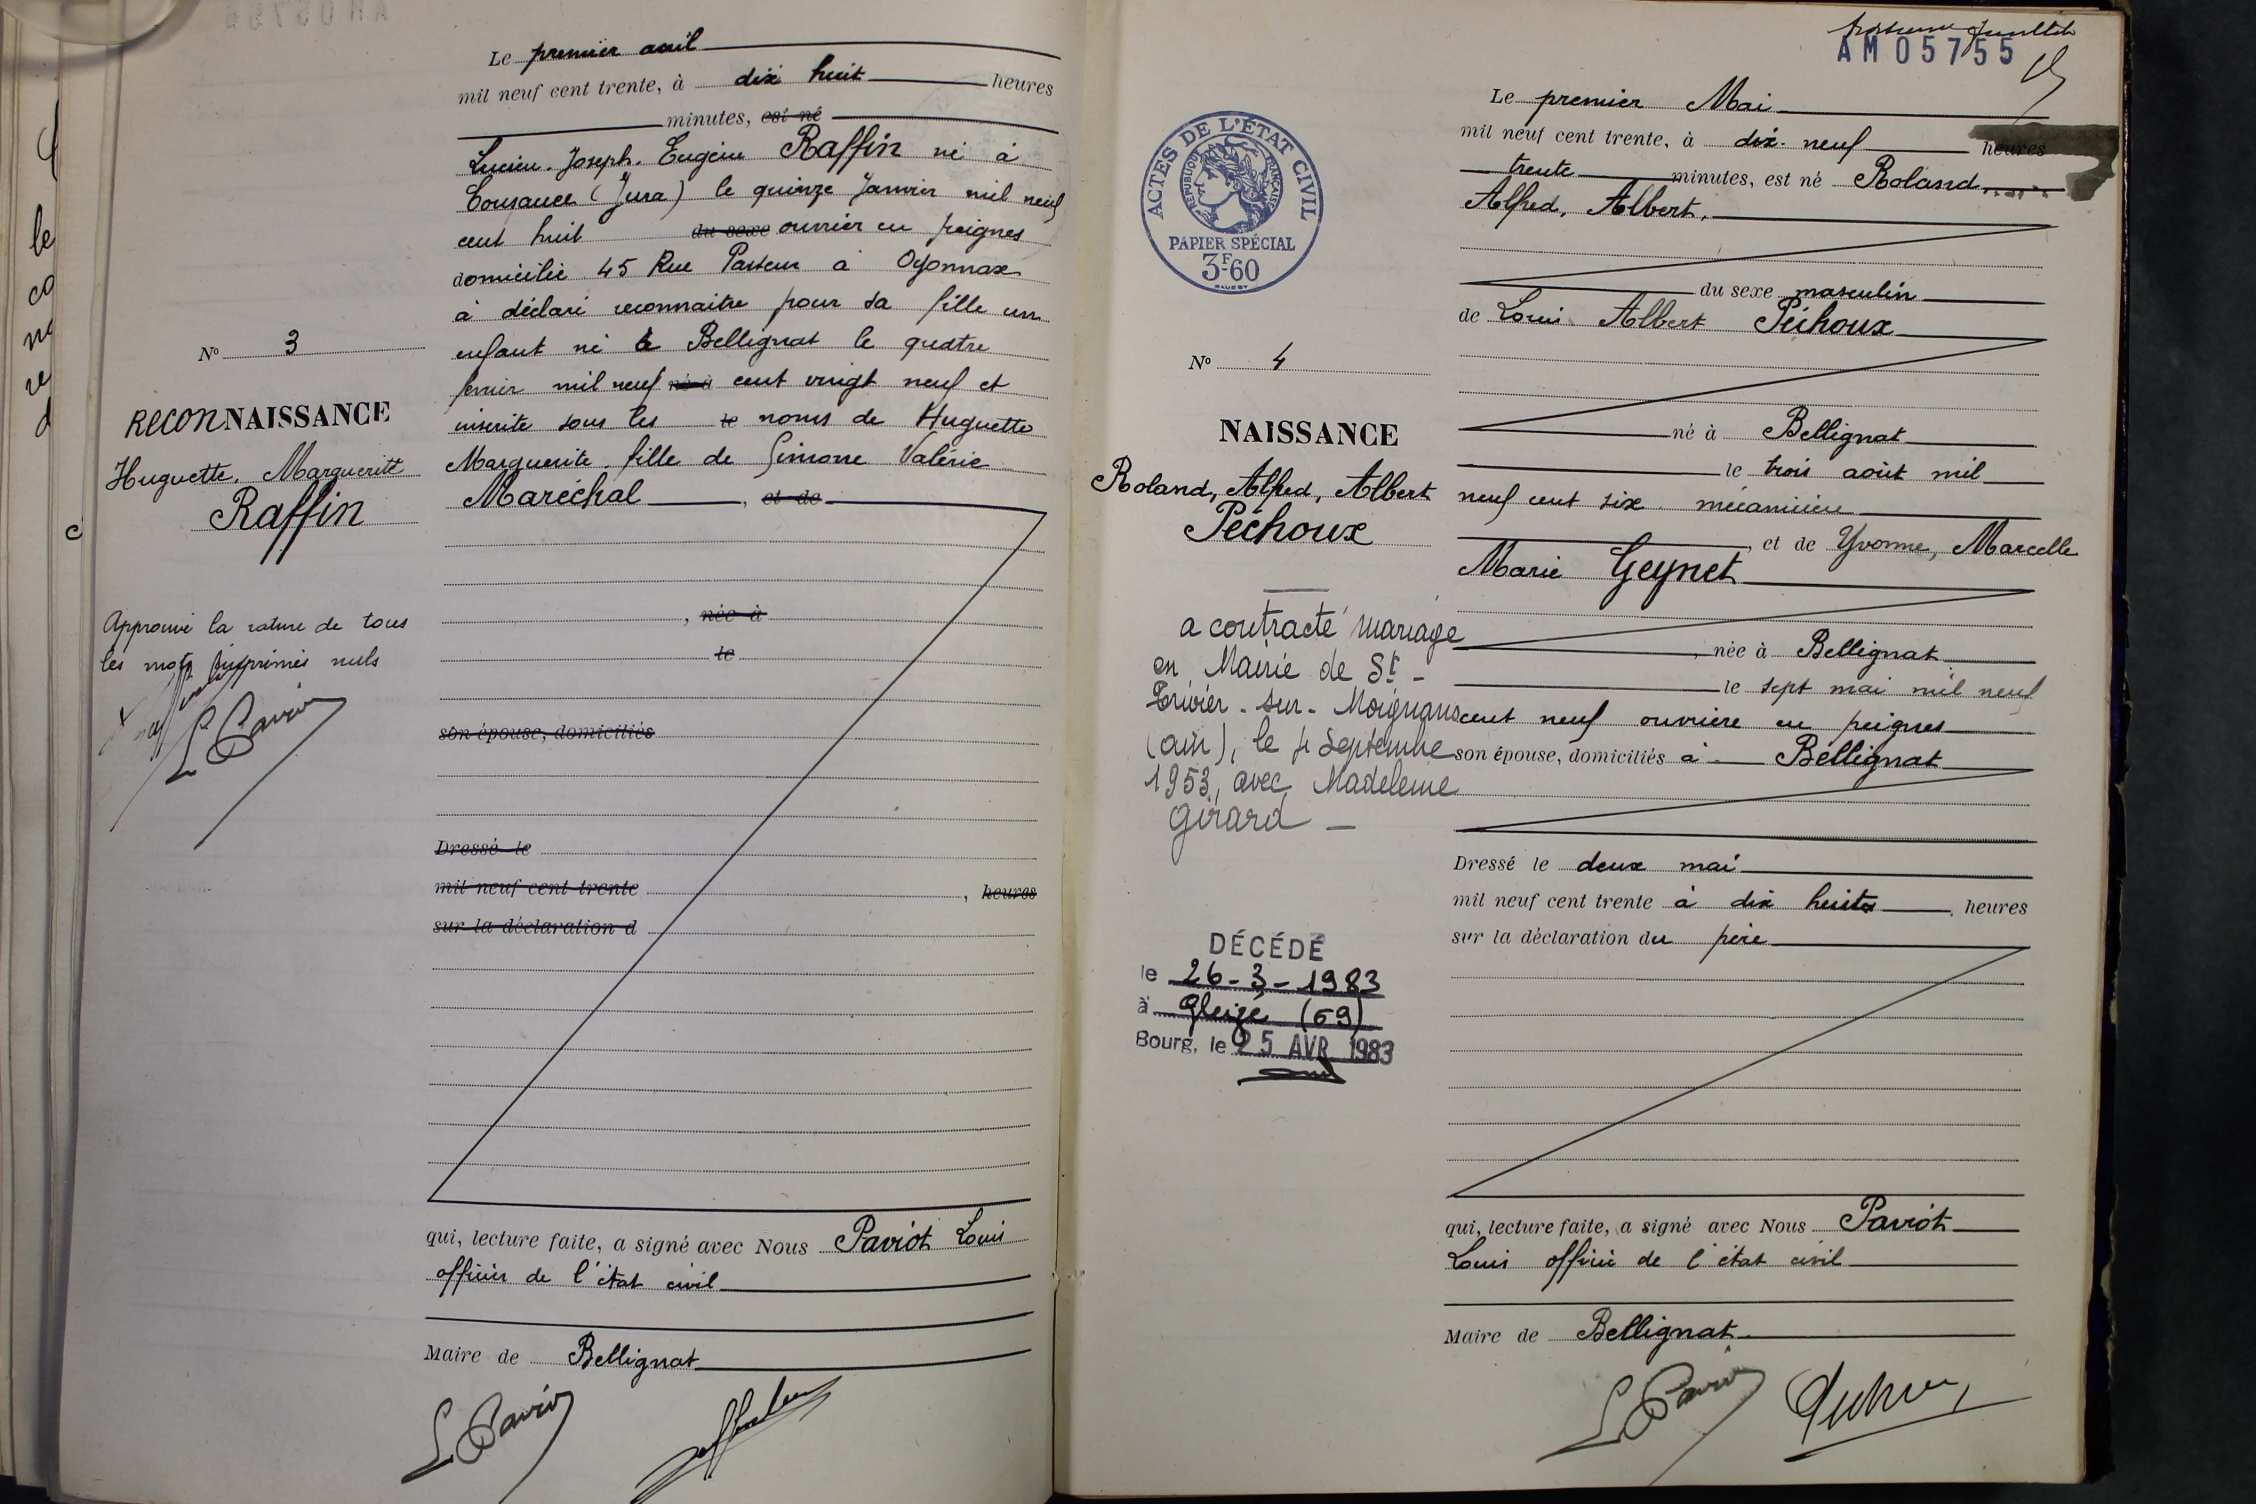 Le premier avril
mil neuf cent trente, à dix huit heures
minutes, est né
Lucien. Joseph. Eugène Raffin né à
Cousance (Jura) le quinze Janvier mil neuf
cent huit du sexe ouvrier en peignes
domicilié 45 Rue Pasteur à Oyonnax
à déclaré reconnaitre pour sa fille un
enfant né à Bellignat le quatre
mil neuf né à cent vingt neuf et
inscrite sous les le noms de Huguette
Marguerite. fille de Simone Valérie
Maréchal, et de
, née à
le
son épouse, domiciliés
Dressé le
mil neuf cent trente, heures
sur la déclaration d
qui, lecture faite, a signé avec Nous Paviot Louis
officier de l'état civil
Maire de Bellignat
L Paviot
No 3
RECONNAISSANCE
Huguette, Marguerite
Raffin
Approuvé la rature de tous
les mots imprimés nuls
L Paviot
AM05755
Le premier Mai
mil neuf cent trente, à dix-neuf heures
trente minutes, est né Roland
Alfred, Albert,
du sexe masculin
de Louis Albert Péchoux
né à Bellignat
le trois août mil
neuf cent six mécanicien
, et de Yvonne, Marcelle
Marie Geynet
, née à Bellignat
le sept mai mil neuf
cent neuf ouvrière en peignes
son épouse, domiciliés à Bellignat
Dressé le deux mai
mil neuf cent trente à dix huit heures
sur la déclaration du père
qui, lecture faite, a signé avec Nous Paviot
Louis officié de l'état civil
Maire de Bellignat
L Paviot
ACTES DE L'ÉTAT CIVIL
RÉPUBLIQUE FRANÇAISE
PAPIER SPÉCIAL
3F60
No 4
NAISSANCE
Roland, Alfred, Albert
Péchoux
a contracté mariage
en Mairie de St-
Trivier-sur-Moignans
(Ain), le 4 Septembre
1953, avec Madeleine
Girard
DÉCÉDÉ
le 26-3-1983
à Gleizé (69)
Bourg, le 25 AVR 1983